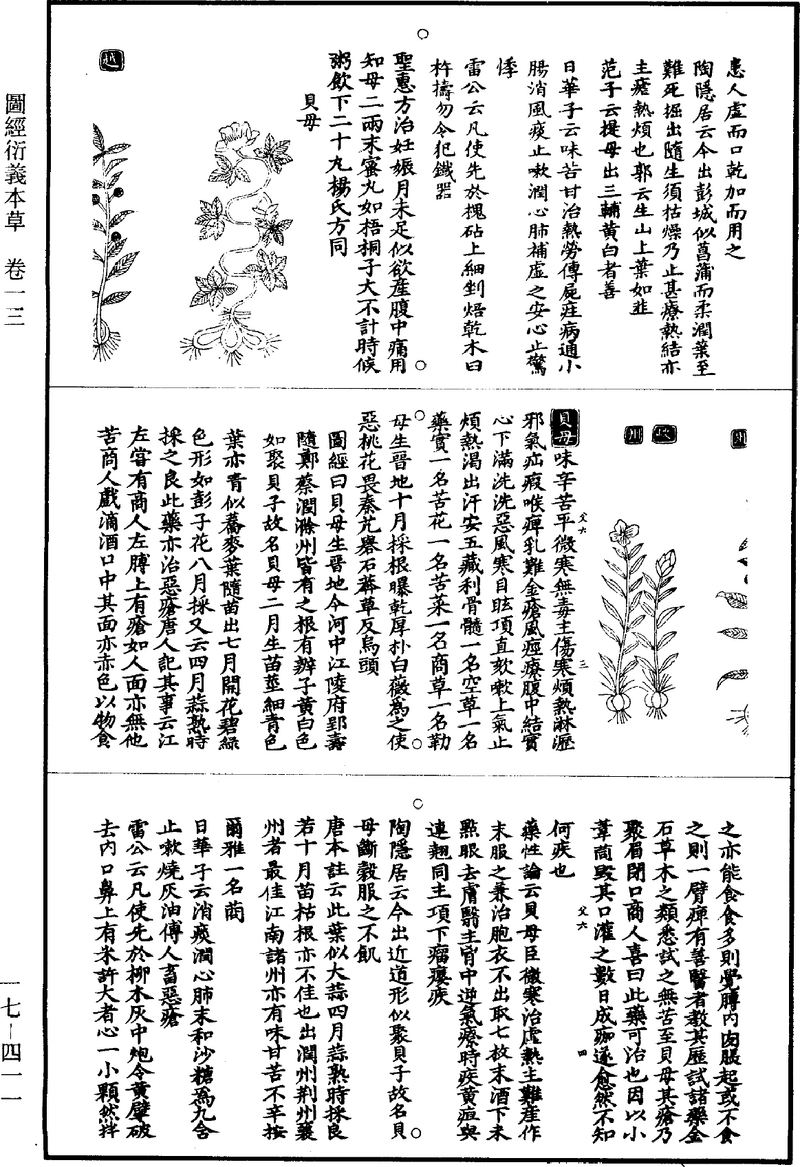 圖經衍義本草　卷一三
患人虛而口乾加而用之
陶隱居云今出彭城似菖蒲而柔潤葉至
難死掘出隨生須枯燥乃止甚療熱結亦
主瘧熱煩也郭云生山上葉如韭
范子云提母出三輔黃白者善
日華子云味苦甘治熱勞傳屍疰病通小
腸消風痰止嗽潤心肺補虛乏安心止驚
悸
雷公云凡使先於槐砧上細剉焙乾木臼
杵擣勿令犯鐵器
聖惠方治妊娠月未足似欲產腹中痛用
知母二兩末蜜丸如梧桐子大不計時候
粥飲下二十丸楊氏方同
貝母
越
貝母味辛苦平微寒無毒主傷寒煩熱淋瀝
邪氣疝瘕喉痺乳難金瘡風痙療腹中結實
心下滿洗洗惡風寒目眩項直欬嗽上氣止
煩熱渴出汗安五藏利骨髓一名空草一名
藥實一名苦花一名苦菜一名商草一名勒
母生晉地十月採根曝乾厚朴白薇為之使
惡桃花畏秦艽礜石莽草反烏頭
圖經曰貝母生晉地今河中江陵府郢壽
隨鄭蔡潤滁州皆有之根有瓣子黃白色
如聚貝子故名貝母二月生苗莖細青色
葉亦青似蕎麥葉隨苗出七月開花碧綠
色形如彭子花八月採又云四月蒜熟時
採之良此藥亦治惡瘡唐人記其事云江
左嘗有商人左膊上有瘡如人面亦無他
苦商人戲滴酒口中其面亦赤色以物食
父六
三
之亦能食食多則覺膊內肉脹起或不食
之則一臂痺有善醫者教其歷試諸藥金
石草木之類悉試之無苦至貝母其瘡乃
聚眉閉口商人喜曰此藥可治也因以小
葦筒毀其口灌之數日成痂遂愈然不知
何疾也
父六
四
藥性論云貝母臣微寒治虛熱主難產作
末服之兼治胞衣不出取七枚末酒下末
點眼去膚翳主胷中逆氣療時疾黃疸與
連翹同主項下瘤癭疾
陶隱居云今出近道形似聚貝子故名貝
母斷穀服之不飢
唐本註云此葉似大蒜四月蒜熟時採良
若十月苗枯根亦不佳也出潤州荆州襄
州者最佳江南諸州亦有味甘苦不辛按
爾雅一名莔
日華子云消痰潤心肺末和沙糖為丸含
止嗽燒灰油傅人畜惡瘡
雷公云凡使先於柳木灰中炮令黃擘破
去內口鼻上有米許大者心一小顆然拌
一七—四一一